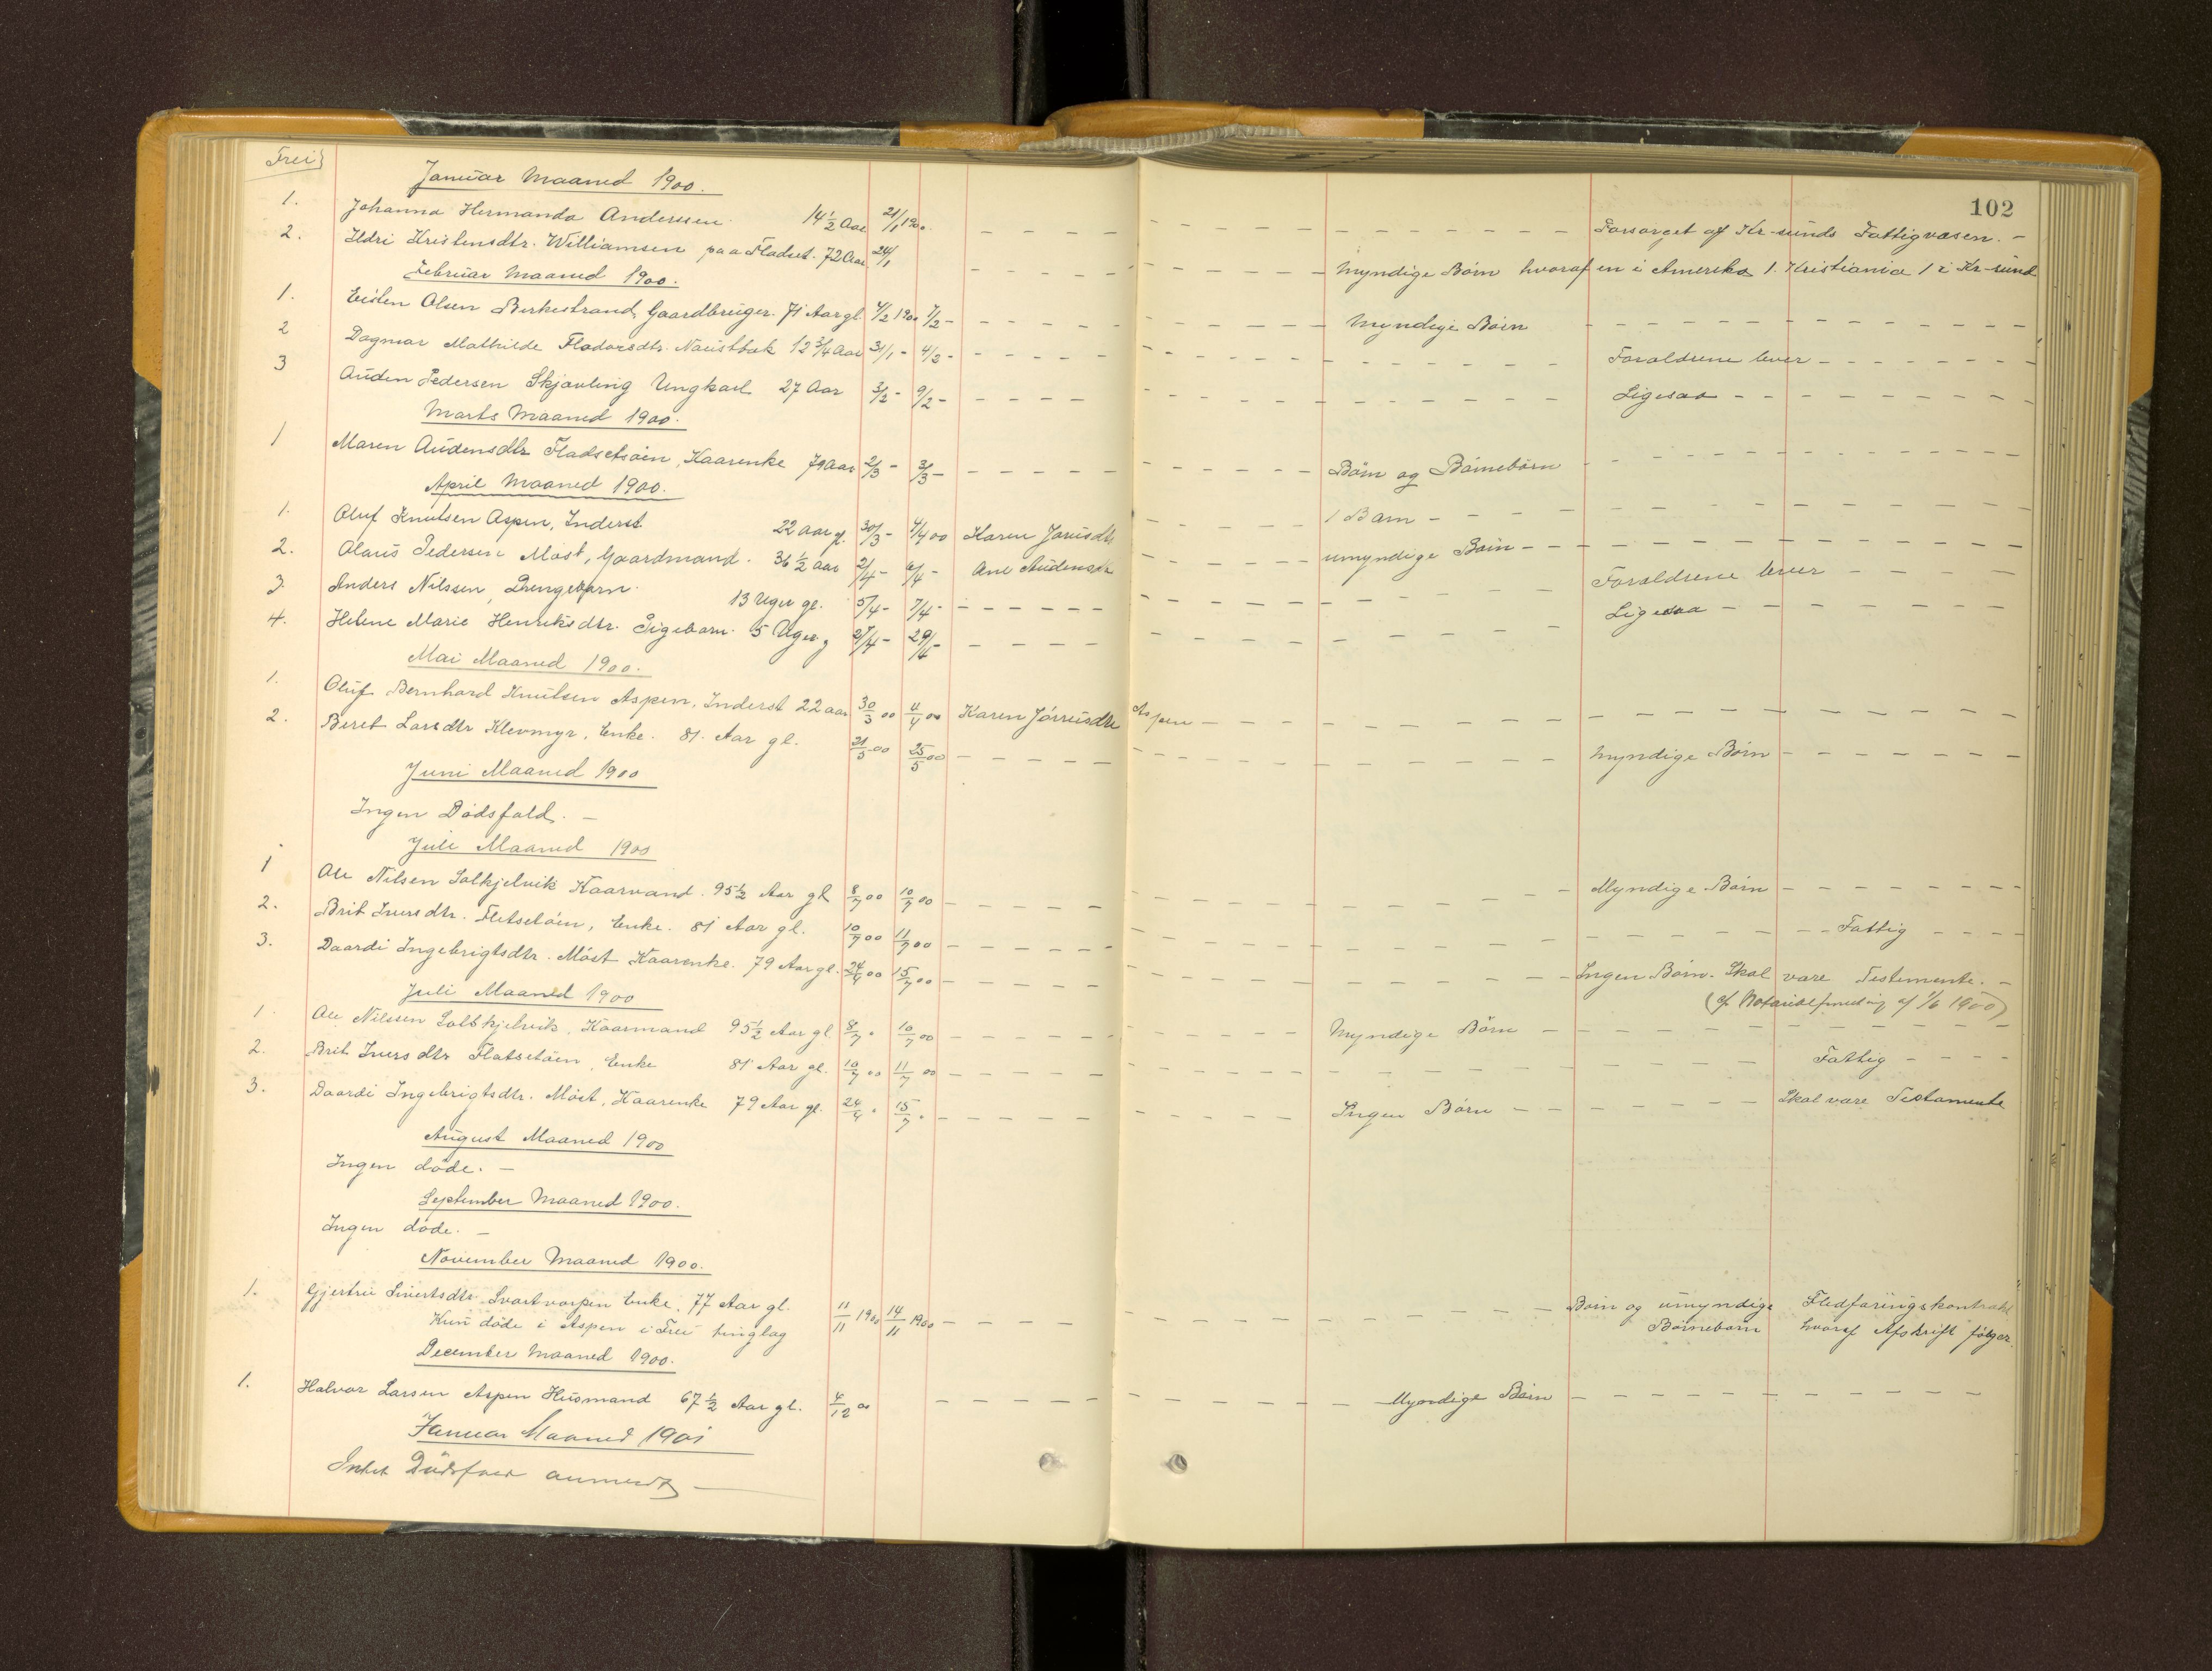 Frei
102
Januar Maaned 1900.
1. Johanna Hermanda Anderssen 14½ Aar 21/1 1900. - - - - Forsørget af Kr-sunds Fattigvæsen. -
2. Ildri Kristensdtr. Williamsen paa Fladset. 72 Aar 24/1 - - - - Myndige Børn hvoraf en i Amerika 1. Kristiania 1 i Kr-sund
Februar Maaned 1900.
1. Eisten Olsen Birkestrand, Gaardbruger. 71 Aar gl. 4/2 1900 7/2 - - - - Myndige Børn - - - -
2 Dagmar Mathilde Pladarsdtr. Naustbak 12 3/4 Aar 31/1 - 4/2 - - - - Forældrene lever - - - -
3 Auden Pedersen Skjævling Ungkarl 27 Aar 3/2 - 9/2 - - - - Ligesaa - - - -
Marts Maaned 1900.
1 Maren Audensdtr Fladsetøien, Kaarenke 79 Aar 2/3 - 3/3 - - - - Børn og Børnebørn - - - -
April Maaned 1900.
1. Oluf Knutsen Aspen, Inderst 22 Aar g. 30/3 - 4/4 00 Karen Jørrisdtr - - - - 1 Barn - - - -
2. Olaus Pedersen Møst, Gaardmand. 36 ½ Aar 2/4 - 6/4 - Ane Audensdtr - - - - umyndige Børn - - - -
3 Anders Nilssen, Drengebarn. 13 Uger gl. 5/4 - 7/4 - - - - Forældrene lever - - - -
4. Helene Marie Henriksdtr. Pigebarn. 5 Uger g 27/4 - 29/4 - - - - Ligesaa - - - -
Mai Maaned 1900.
1. Oluf Bernhard Knutsen Aspen, Inderst 22 aar 30/3 00 4/4 00 Karen Jørrisdtr Aspen - - - -
2. Beret Larsdtr Klevmyr, Enke. 81. Aar gl. 21/5 00 25/5 00 - - - - Myndige Børn - - - -
Juni Maaned 1900
Ingen Dødsfald. -
Juli Maaned 1900
1 Ole Nilsen Solkjelvik Kaarmand. 95½ Aar gl 8/7 00 10/7 00 - - - - Myndige Børn - - - -
2. Brit Iversdtr. Fletsetøien, Enke. 81 Aar gl. 10/7 00 11/7 00 - - - - Fattig - - - -
3. Daardi Ingebrigtsdtr. Møst Kaarenke. 79 Aar gl. 24/4 00 15/7 00 - - - - Ingen Børn. Skal være Testimente. -
(cf. af 1/6 1900)
Juli Maaned 1900
1. Ole Nilssen Solskjelvik, Kaarmand 95½ Aar gl 8/7 " 10/7 00 - - - - Myndige Børn - - - -
2. Brit Iversdtr Flatsetøien, Enke 81 Aar gl. 10/7 00 11/7 00 - - - - Fattig - - - -
3. Daardi Ingebrigtsdtr. Møst, Kaarenke 79 Aar gl. 24/4 " 15/7 " - - - - Ingen Børn - - - - Skal være Testamente
August Maaned 1900
Ingen døde. -
September Maaned 1900.
Ingen døde. -
November Maaned 1900.
1. Gjertru Sivertsdtr. Svartvarpen Enke. 77 Aar gl. 11/11 1900 14/11 1900 - - - - Børn og umyndige Fledføringskontrakt
Hun døde i Aspen i Frei tinglag Børnebørn hvoraf Afskrift følger.
December Maaned 1900.
1. Halvor Larsen Aspen Husmand 67 ½ Aar gl. 4/12 00 - - - - Myndige Børn - - - -
Januar Maaned 1901
Intet Dødsfald anmeldt